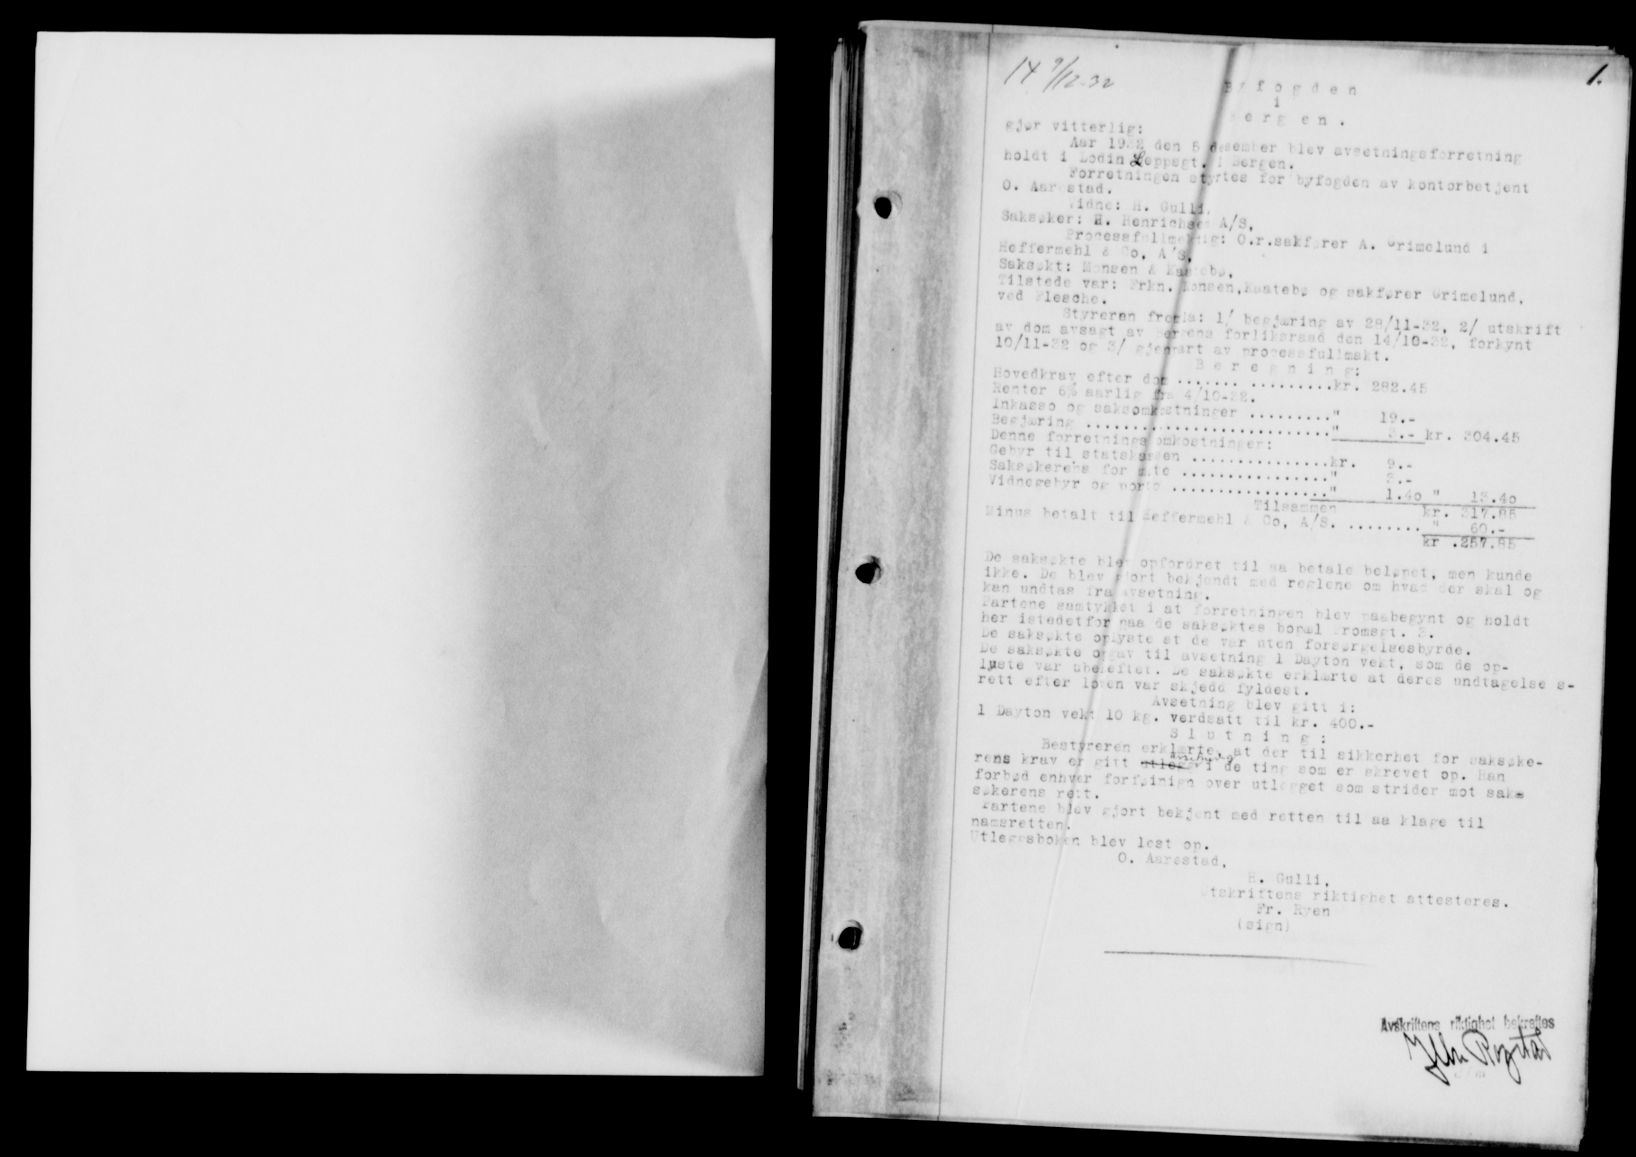 14 9/12-32
1.
Byfogden
i
Bergen.
gjør vitterlig:
Aar 1932 den 6 desember blev avsetningsforretning
holdt i Lodin Leppsgt. i Bergen.
Forretningen styrtes for byfogden av kontorbetjent
O. Aarestad.
Vidne: H. Gulli.
Saksøker: H. Henrichsen A/S,
Processfullmektig: O.r.sakfører A. Grimelund i
Heffermehl & Co, A/S,
Saksøkt: Monsen & Kaatebø,
Tilstede var: Frkn. Monsen, Kaatebø og sakfører Grimelund,
ved Flesche.
Styreren frogla: 1/ begjæring av 28/11-32, 2/ utskrift
av dom avsagt av Bergens forliksraad den 14/10-32, forkynt
10/11-32 og 3/ gjenpart av processfullmakt.
Beregning:
Hovedkrav efter dom ....... .........kr. 282.45
Renter 6% aarlig fra 4/10-32.
Inkasso og saksomkostninger ........." 19.-
Begjæring ..........................." 3.- kr. 304.45
Denne forretnings omkostninger:
Gebyr til statskassen ...............kr. 9.-
Saksøkerens for møte ................" 3.-
Vidnegebyr og porto ................." 1.40 " 13.40
Tilsammen kr. 317.85
Minus betalt til Heffermehl & Co, A/S. ........ " 60.-
kr .257.85
De saksøkte blev opfordret til aa betale beløpet, men kunde
ikke. De blev gjort bekjendt med reglene om hvad der skal og
kan undtas fra avsetning.
Partene samtykket i at forretningen blev paabegynt og holdt
her istedetfor paa de saksøktes bopæl Tromsgt. 3.
De saksøkte oplyste at de var uten forsørgelsesbyrde.
De saksøkte opgav til avsetning 1 Dayton vekt, som de op-
lyste var ubeheftet. De saksøkte erklærte at deres undtagelse s-
rett efter loven var skjedd fyldest.
Avsetning blev gitt i:
1 Dayton vekt 10 kg. verdsatt til kr. 400.-
Slutning:
Bestyreren erklærte, at der til sikkerhet for saksøke-
rens krav er gitt utlegg i de ting som er skrevet op. Han
forbød enhver forføinign over utlegget som strider mot saks
søkerens rett.
Partene blev gjort bekjent med retten til aa klage til
namsretten.
Utleggsboken blev lest op.
O. Aarestad,
H. Gulli,
Utskriftens riktighet attesteres.
Fr. Ryen
(sign)
Avskriftens riktighet bekreftes